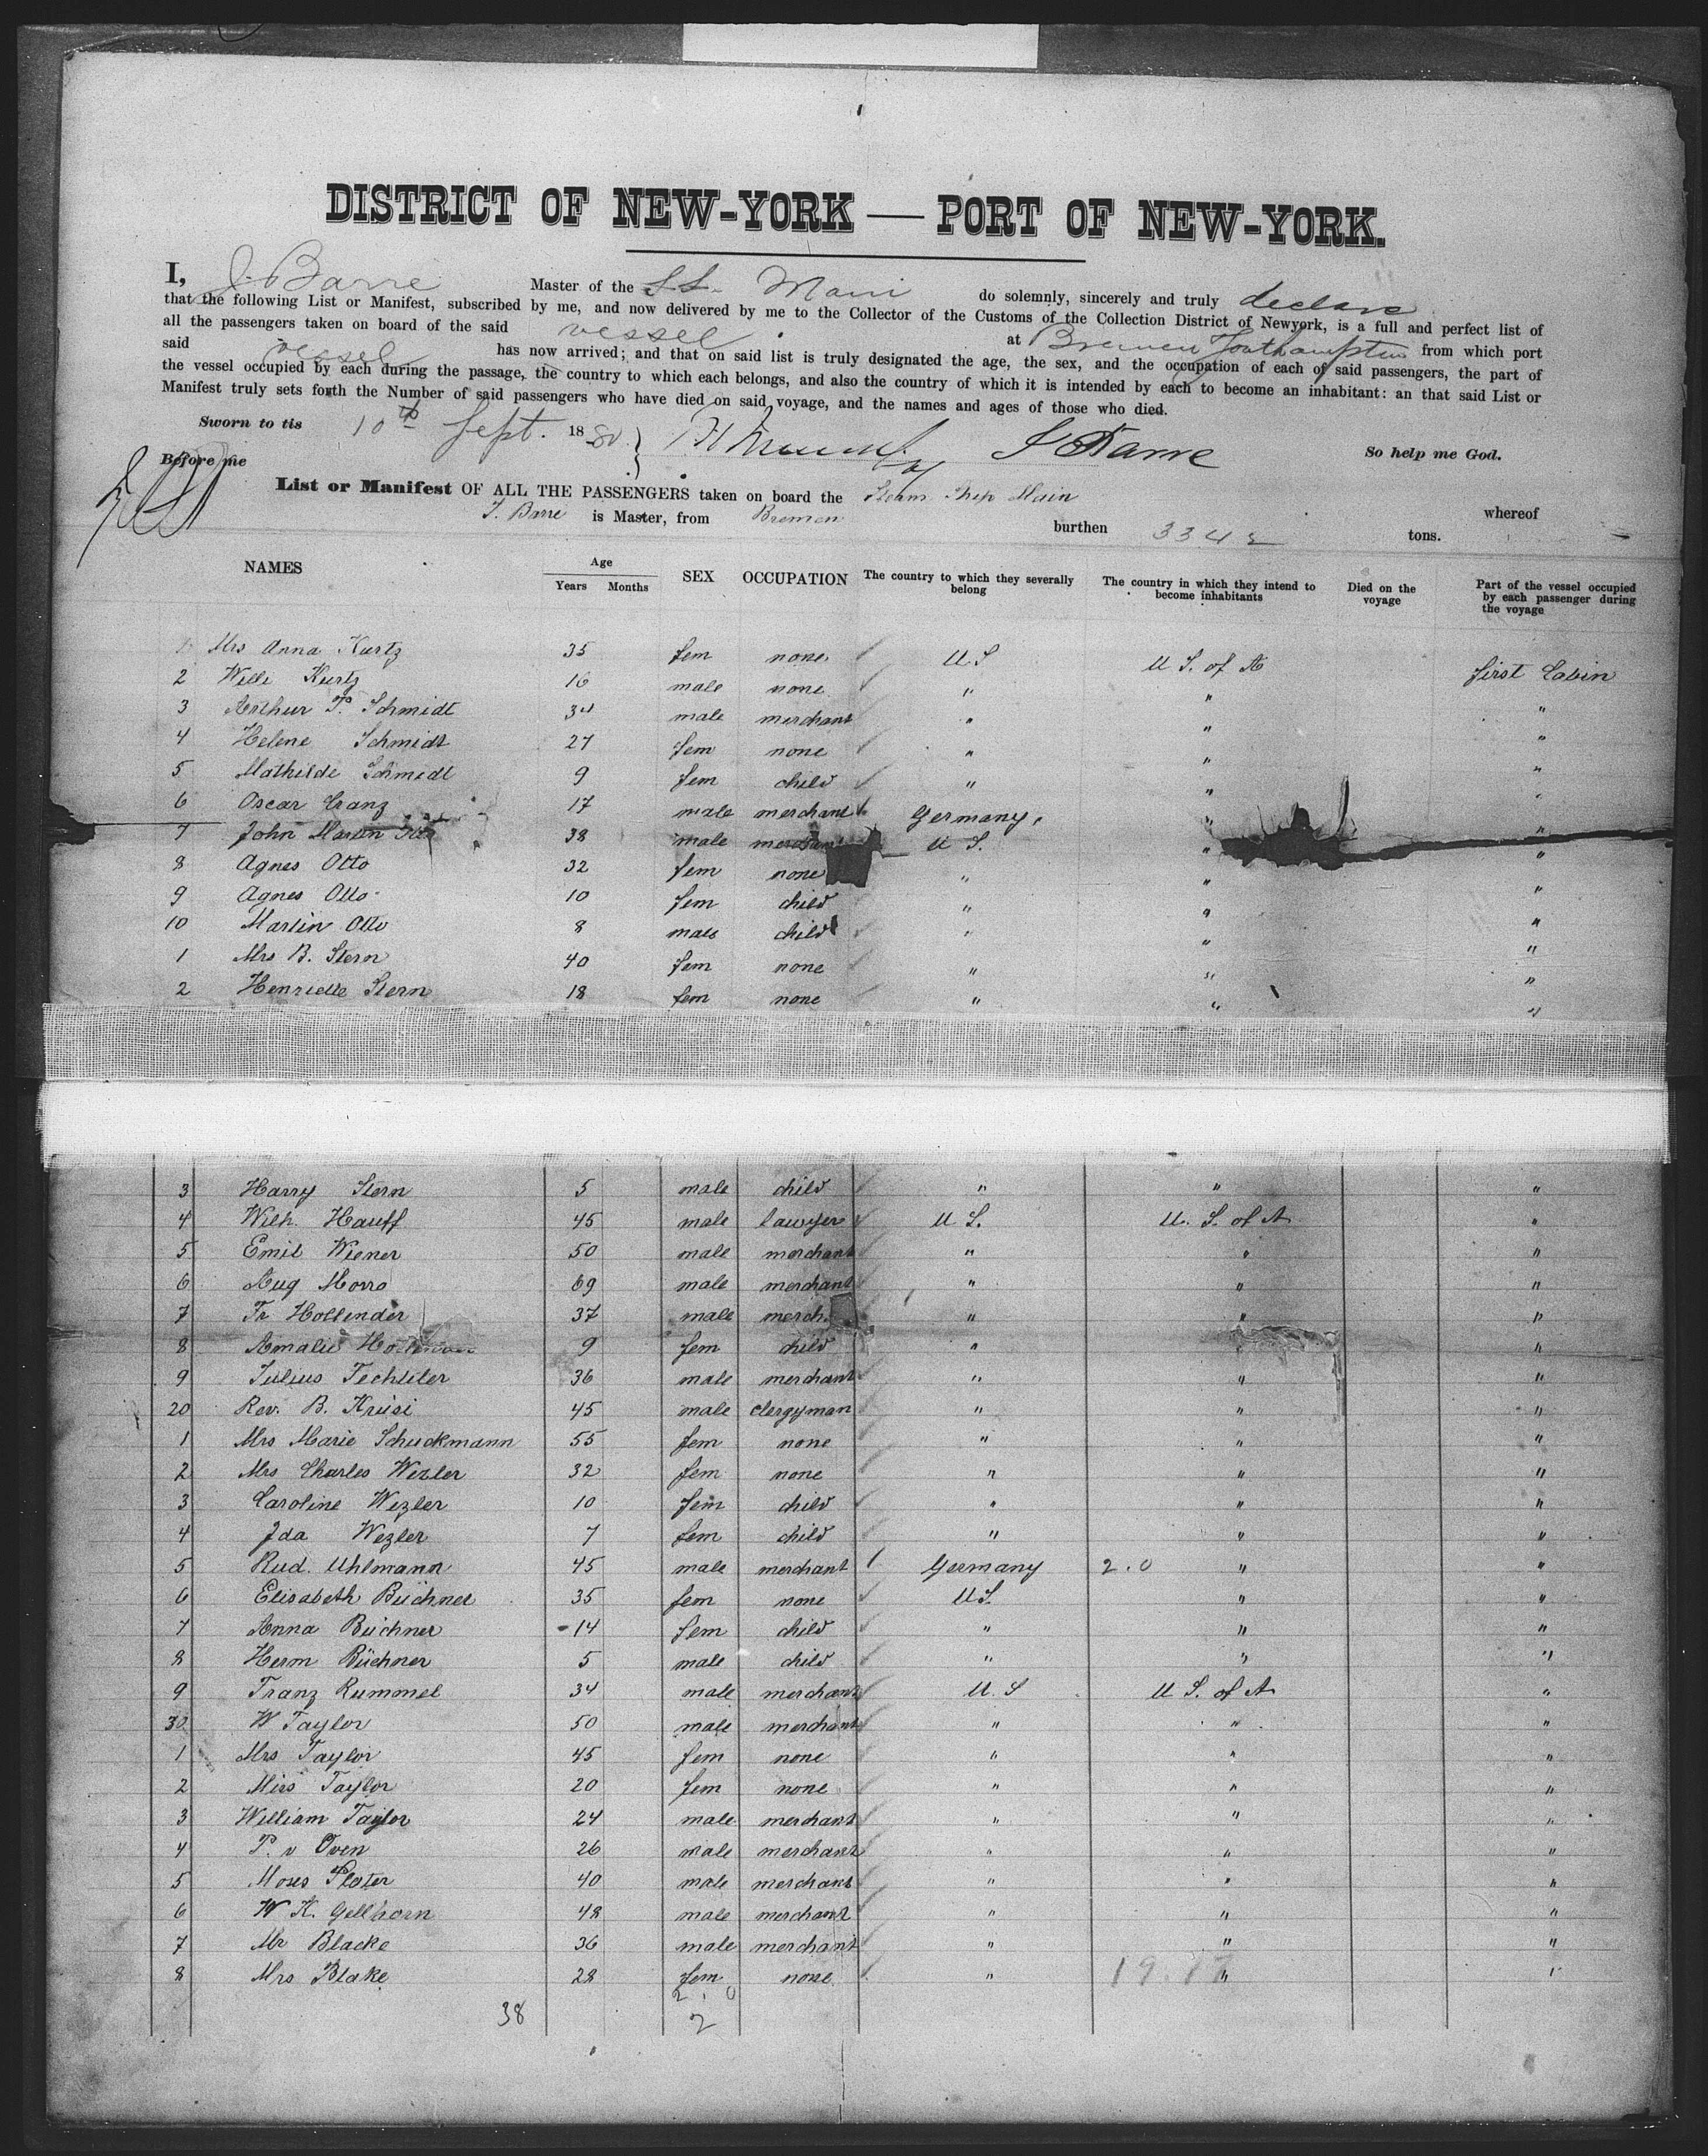 DISTRICT OF NEW-YORK — PORT OF NEW-YORK.
I, J. Barre Master of the S.S. Main do solemnly, sincerely and truly declare
that the following List or Manifest, subscribed by me, and now delivered by me to the Collector of the Customs of the Collection District of Newyork, is a full and perfect list of
all the passengers taken on board of the said vessel at Bremen Southampton from which port
said vessel has now arrived; and that on said list is truly designated the age, the sex, and the occupation of each of said passengers, the part of
the vessel occupied by each during the passage, the country to which each belongs, and also the country of which it is intended by each to become an inhabitant: an that said List or
Manifest truly sets forth the Number of said passengers who have died on said voyage, and the names and ages of those who died.
Sworn to tis 10th Sept. 1880 J Barre So help me God.
Before me
List or Manifest OF ALL THE PASSENGERS taken on board the Steam Ship Main whereof
J. Barre is Master, from Bremen burthen 3342 tons.
NAMES Age Years Months SEX OCCUPATION The country to which they severally belong The country in which they intend to become inhabitants Died on the voyage Part of the vessel occupied by each passenger during the voyage
1 Mrs Anna Kurtz 35 fem none U S U S. of A first Cabin
2 Willi Kurtz 16 male none " " "
3 Arthur P. Schmidt 34 male merchant " " "
4 Helene Schmidt 27 fem none " " "
5 Mathilde Schmidt 9 fem child " " "
6 Oscar Cranz 17 male merchant Germany " "
7 John Martin Otto 38 male merchant U S. " "
8 Agnes Otto 32 fem none " " "
9 Agnes Otto 10 fem child " " "
10 Martin Otto 8 male child " " "
1 Mrs B. Stern 40 fem none " " "
2 Henriette Stern 18 fem none " " "
3 Harry Stern 5 male child " " "
4 Wilh. Hauff 45 male lawyer U S. U. S. of A "
5 Emil Wiener 50 male merchant " " "
6 Aug Morro 69 male merchant " " "
7 Fr Hollender 37 male merch. " " "
8 Amalie 9 fem child " " "
9 Julius Fechteler 36 male merchant " " "
20 Rev. B. Krüsi 45 male clergyman " " "
1 Mrs Marie Schuckmann 55 fem none " " "
2 Mrs Charles Wezler 32 fem none " " "
3 Caroline Wezler 10 fem child " " "
4 Ida Wezler 7 fem child " " "
5 Rud. Uhlmann 45 male merchant 1 Germany 2.0 " "
6 Elisabeth Büchner 35 fem none U S. " "
7 Anna Büchner 14 fem child " " "
8 Herm Büchner 5 male child " " "
9 Franz Rummel 34 male merchant U. S U S. of A "
30 W Taylor 50 male merchant " " "
1 Mrs Taylor 45 fem none " " "
2 Miss Taylor 20 fem none " " "
3 William Taylor 24 male merchant " " "
4 P. v Oven 26 male merchant " " "
5 Moses Plater 40 male merchant " " "
6 W K. Gellhorn 48 male merchant " " "
7 Mr Blacke 36 male merchant " " "
8 Mrs Blake 28 fem none " " "
2.0
38 2